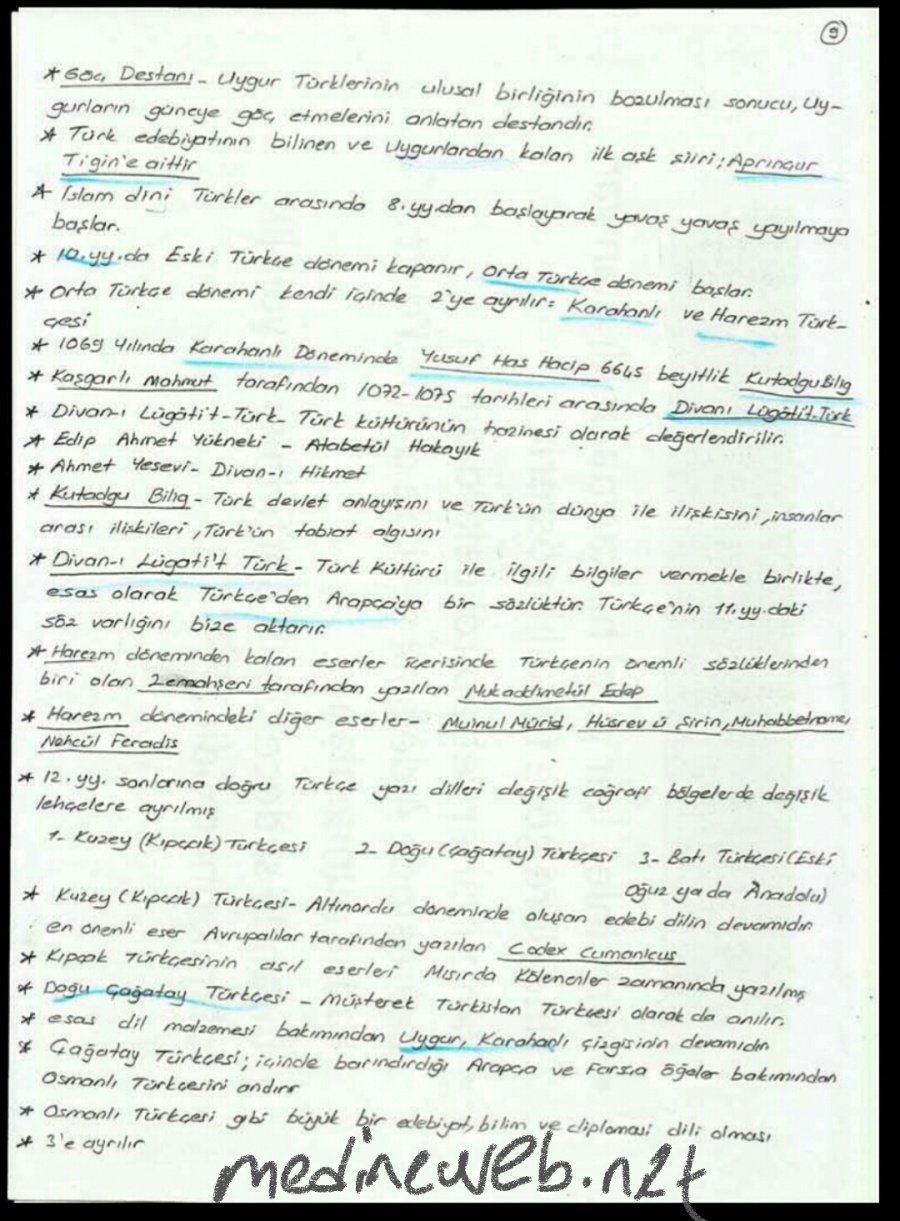 9
* Göç Destanı - Uygur Türklerinin ulusal birliğinin bozulması sonucu, Uy-
gurların güneye göç etmelerini anlatan destandır.
* Türk edebiyatının bilinen ve Uygurlardan kalan ilk aşk şiiri; Aprınçur
Tigin'e aittir
* İslam dini Türkler arasında 8.yy.dan başlayarak yavaş yavaş yayılmaya
başlar.
* 10.yy.da Eski Türkçe dönemi kapanır, Orta Türkçe dönemi başlar.
* Orta Türkçe dönemi kendi içinde 2'ye ayrılır: Karahanlı ve Harezm Türk-
çesi
* 1069 Yılında Karahanlı Döneminde Yusuf Has Hacip 6645 beyitlik Kutadgu Bilig
* Kaşgarlı Mahmut tarafından 1072-1075 tarihleri arasında Divanı Lügâti't-Türk
* Divan-ı Lügâti't-Türk- Türk kültürünün hazinesi olarak değerlendirilir.
* Edip Ahmet Yükneki - Atabetül Hakayık
* Ahmet Yesevi- Divan-ı Hikmet
* Kutadgu Bilig - Türk devlet anlayışını ve Türk'ün dünya ile ilişkisini, insanlar
arası ilişkileri, Türk'ün tabiat algısını
* Divan-ı Lügati't Türk - Türk Kültürü ile ilgili bilgiler vermekle birlikte,
esas olarak Türkçe'den Arapça'ya bir sözlüktür. Türkçe'nin 11.yy.daki
söz varlığını bize aktarır.
* Harezm döneminden kalan eserler içerisinde Türkçenin önemli sözlüklerinden
biri olan Zemahşeri tarafından yazılan Mukaddimetül Edep
* Harezm dönemindeki diğer eserler- Muinul Mürid, Hüsrev ü Şirin, Muhabbetname,
Nehcül Feradis
* 12.yy. sonlarına doğru Türkçe yazı dilleri değişik coğrafi bölgelerde değişik
lehçelere ayrılmış
1- Kuzey (Kıpçak) Türkçesi 2- Doğu (Çağatay) Türkçesi 3- Batı Türkçesi (Eski
Oğuz ya da Anadolu)
* Kuzey (Kıpçak) Türkçesi- Altınordu döneminde oluşan edebi dilin devamıdır.
en önemli eser Avrupalılar tarafından yazılan Codex Cumanicus
* Kıpçak Türkçesinin asıl eserleri Mısırda Kölemenler zamanında yazılmış
* Doğu Çağatay Türkçesi - Müşterek Türkistan Türkçesi olarak da anılır.
* esas dil malzemesi bakımından Uygur, Karahanlı çizgisinin devamıdır
* Çağatay Türkçesi; içinde barındırdığı Arapça ve Farsça öğeler bakımından
Osmanlı Türkçesini andırır
* Osmanlı Türkçesi gibi büyük bir edebiyat, bilim ve diplomasi dili olması
* 3'e ayrılır
medineweb.n2t